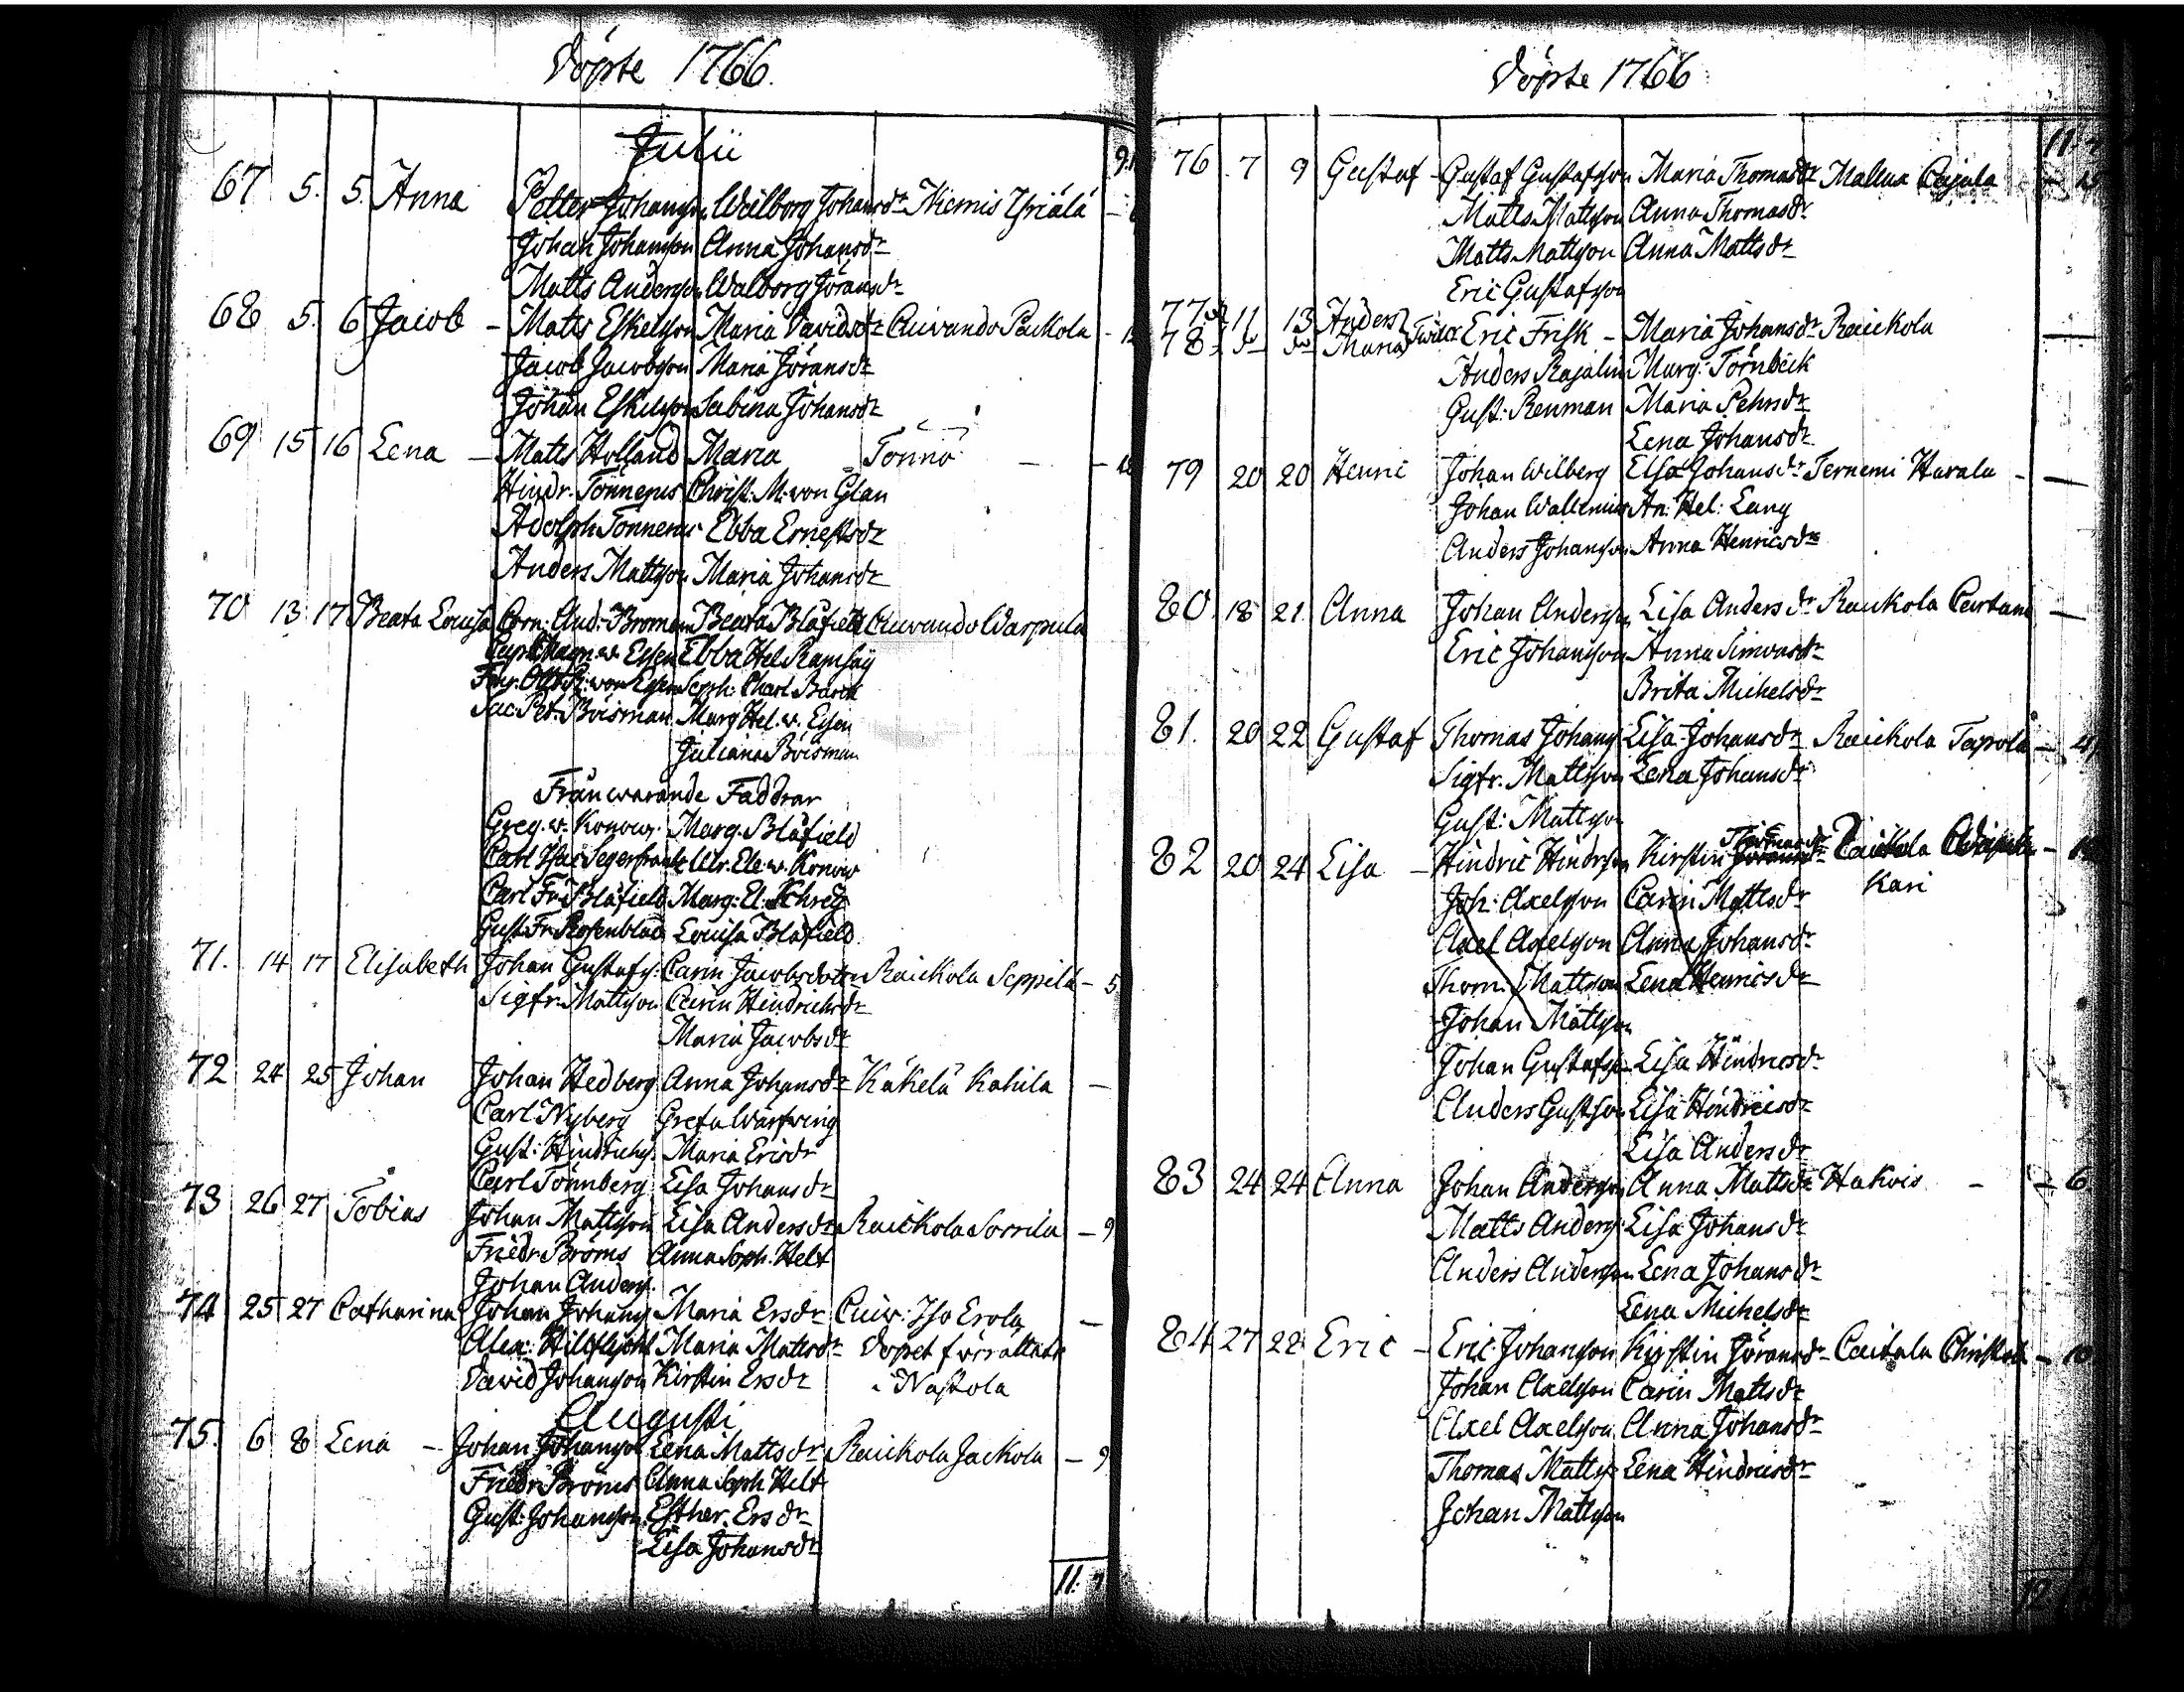 Döpte 1766.
Julii
67 5. 5. Anna Petter Johansson Walborg Johansdr Niemis Yriälä
Johan Johansson Anna Johansdr
Matts Andersson Walborg Jöransdr
68 5. 6 Jacob – Matts Eskelsson Maria Davidsdr Auvando Packola –
Jacob Jacobsson Maria Jöransdr
Johan Eskelsson Sabina Johansdr
69 15 16 Lena – Matts Holland Maria Tönnö – –
Hindr. Tönnerus Christ. M. von Glan
Adolph Tonnerus Ebba Ernestsdr
Anders Mattsson Maria Johansdr
70 13 17 Beata Lovisa Corn: And: Broman Beata Blåfield Auvando Warpula
Capt. Magn. v. Essen Ebba Hel Ramsay
Fenr. Otto R: von Essen Soph: Charl. Barck
Jac Pet. Böisman Marg Hel. v. Essen
Juliana Böisman
Frånwarande Faddrar
Greg. v. Konow. Marg. Blåfield
Carl Isac Segercrantz Ulr. Ele v. Konow
Carl Fr. Blåfield Marg: El: Schreij
Gust. Fr. Rosenblad Lovisa Blåfield
71. 14 17 Elisabeth Johan Gustafs: Carin Jacobsdotter Raickola Seppilä – 5
Sigfr. Mattsson Carin Hindrichsdr
Maria Jacobsdr
72 24 25 Johan Johan Hedberg Anna Johansdr Käkelä Kahila –
Carl Nyberg Greta Warfwing
Gust: Hindrichs. Maria Ericdr
Carl Tönnberg Lisa Johansdr
73 26 27 Tobias Johan Mattsson Lisa Andersdr Raickola Sorrila – 9
Friedr Broms Anna Soph. Helt
Johan Anderss.
74 25 27 Catharina Johan Johanss Maria Ersdr Auw: Iso Erola –
Maria Mattsdr Dopet förrättats
David Johansson Kirstin Ersdr i Nastola
Augusti
75. 6 8 Lena – Johan Johansson Lena Mattsdr Raickola Jackola – 9
Friedr Broms Anna Soph Helt
Gust: Johansson Esther Ersdr
Lisa Johansdr
11.
Döpte 1766
76 7 9 Gustaf – Gustaf Gustafsson Maria Thomasdr Mallua Pajula
Matts Mattsson Anna Thomasdr
Matts Mattsson Anna Mattsdr
Eric Gustafsson
77 11 13 Anders Twill: Eric Frisk – Maria Johansdr Raickola
78 Maria
Anders Rajalin Marg. Törnbeck
Gust: Renman Maria Pehrsdr
Lena Johansdr
79 20 20 Henric Johan Wilberg Elsa Johansdr Ternemi Harala – –
Johan Wallenius An: Hel: Lang
Anders Johansson Anna Henricsdr
80. 18 21. Anna Johan Andersson Lisa Andersdr Raickola Partane –
Eric Johansson Anna Simonsdr
Brita Michelsdr
81. 20 22 Gustaf Thomas Johans Lisa Johansdr Raickola Tapola –
Sigfr. Mattsson Lena Johansdr
Gust: Mattsson
82 20 24 Lisa – Hindric Hindrsson Kirstin
Kari
Joh: Axelsson Carin Mattsdr
Axel Axelsson Anna Johansdr
Thom. Mattsson Lena Henricsdr
Johan Mattsson
Johan Gustafsson Lisa Hindricsdr
Anders Gustsson Lisa Hindricsdr
Lisa Andersdr
83 24 24 Anna Johan Andersson Anna Mattsdr Hakois – – 6
Matts Anderss Lisa Johansdr
Anders Andersson Lena Johansdr
Lena Michelsdr
84 27 28 Eric – Eric Johansson Kirstin Jöransdr – – 10
Johan Axelsson Carin Mattsdr
Axel Axelsson Anna Johansdr
Thomas Matts: Lena Hindricsdr
Johan Mattsson